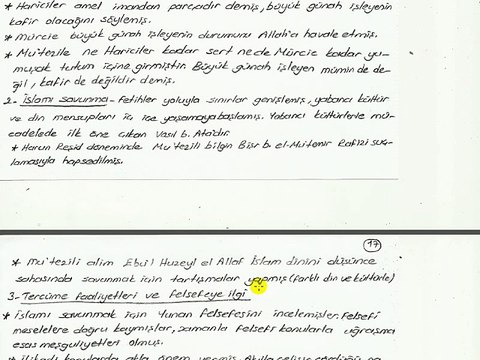 * Hariciler amel imandan parçadır demiş, büyük günah işleyenin
kafir olacağını söylemiş.
* Mürcie büyük günah işleyenin durumunu Allah'a havale etmiş.
* Mu'tezile ne Hariciler kadar sert nede Mürcie kadar yu-
muşak tutum içine girmiştir. Büyük günah işleyen mümin de de-
ğil, kafir de değildir demiş.
2- İslamı savunma - Fetihler yoluyla sınırlar genişlemiş, yabancı kültür
ve din mensupları iç içe yaşamaya başlamış. Yabancı kültürlerle mü-
cadelede ilk öne çıkan Vasıl b. Ata'dır.
* Harun Reşid döneminde Mu'tezili bilgin Bişr b. el-Mu'temir Rafizi suç-
lamasıyla hapsedilmiş.
17
* Mu'tezili alim Ebu'l Huzeyl el Allaf İslam dinini düşünce
sahasında savunmak için tartışmalar yapmış (farklı din ve kültürle)
3- Tercüme faaliyetleri ve felsefeye ilgi
* İslamı savunmak için Yunan felsefesini incelemişler. Felsefi
meselelere doğru kaymışlar, zamanla felsefi konularla uğraşma
esas meşguliyetleri olmuş.